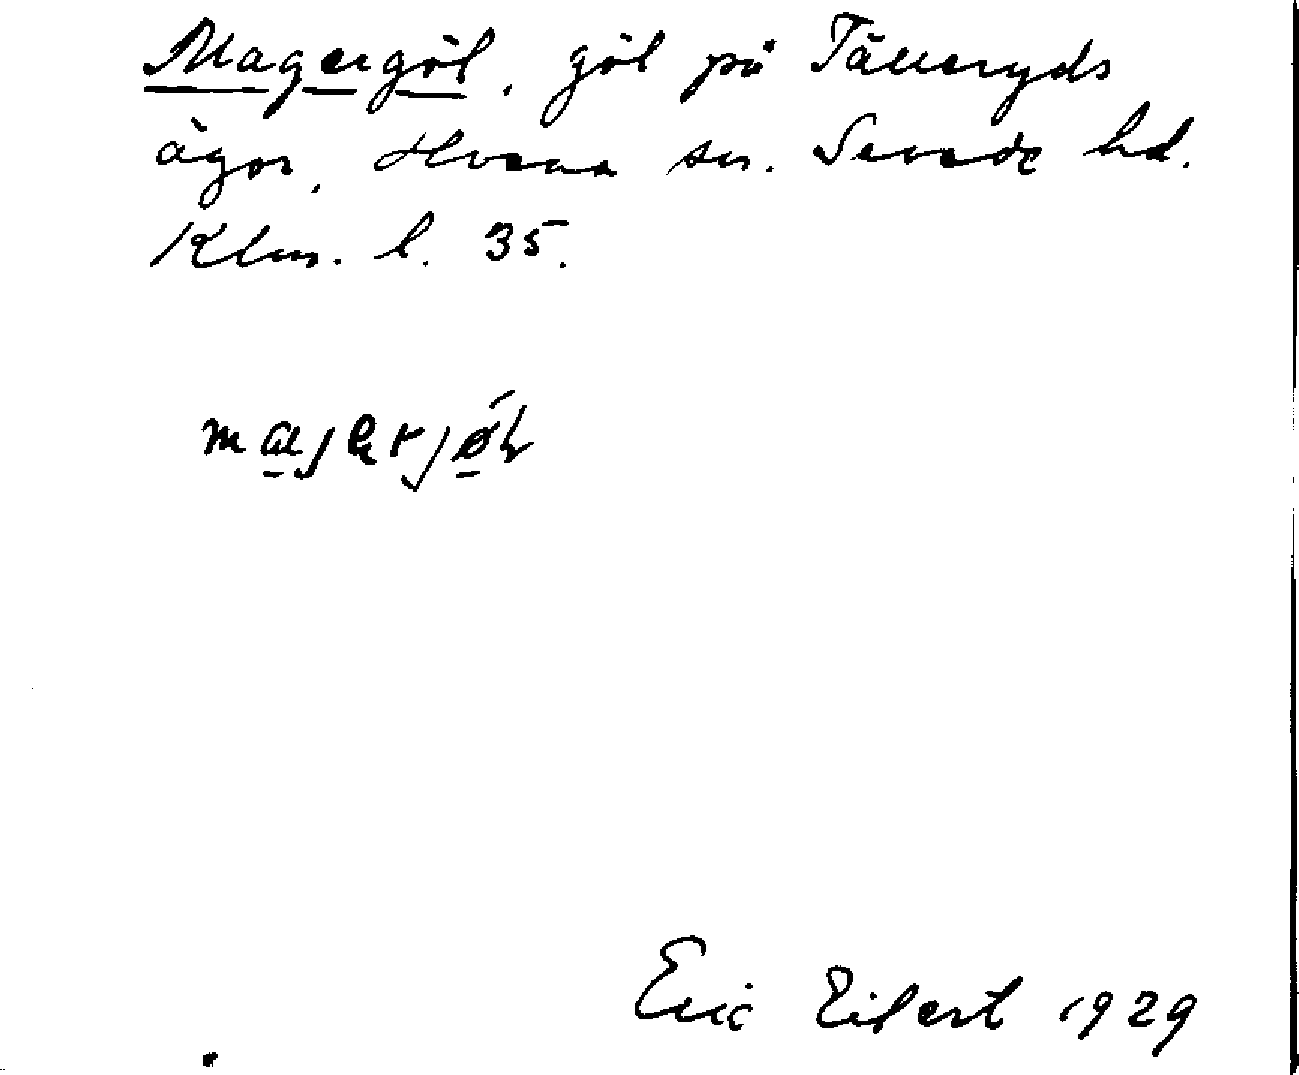 Magergöl, göl på Tälleryds
ägor, Hvena sn. Sevede hd.
Klm. l. 35.
Eric Eifert 1929